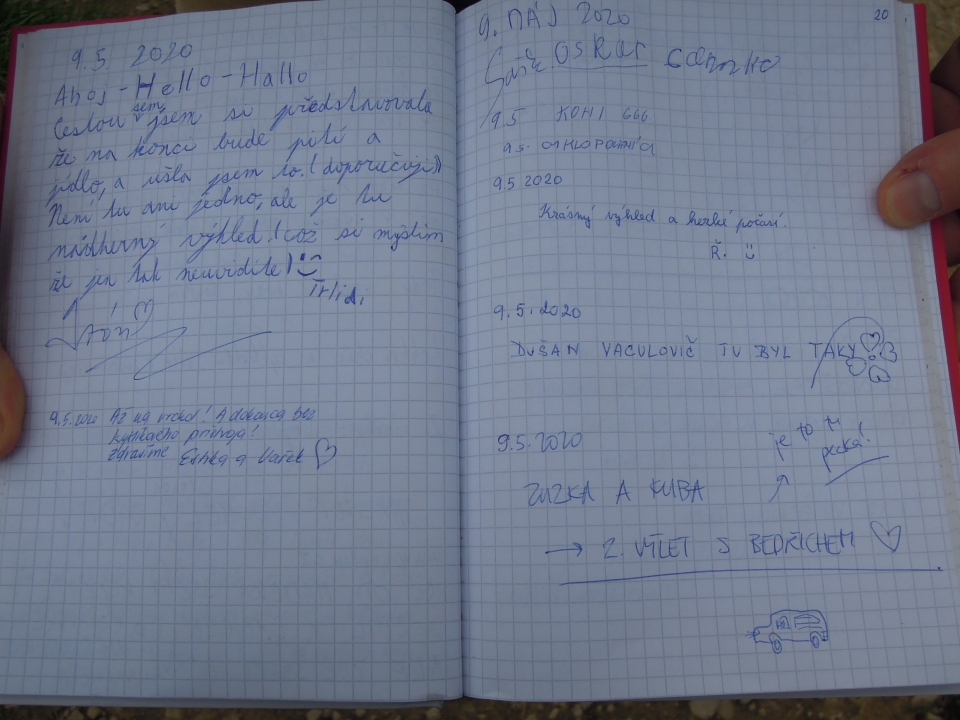 9.5. 2020
Ahoj - Hello - Hallo
Cestou sem jsem si představovala
že na konci bude pití a
jídlo, a ušla jsem to. (doporučuji)
Není tu ani jedno, ale je tu
nádherný výhled! což si myslím
že jen tak neuvidíte!
9.5.2020 Až na vrchol! A dokonce bez
zdravíme
9. MÁJ 2020
20
OSKAR
9.5 KOHI 666
9.5.
9.5 2020
Krásný výhled a hezké počasí.
Ř.
9.5.2020
DUŠAN VACULOVIČ TU BYL TAKY
9.5.2020
je to tu
pecka!
ZUZKA A KUBA
→ 2. VÝLET S BEDŘICHEM